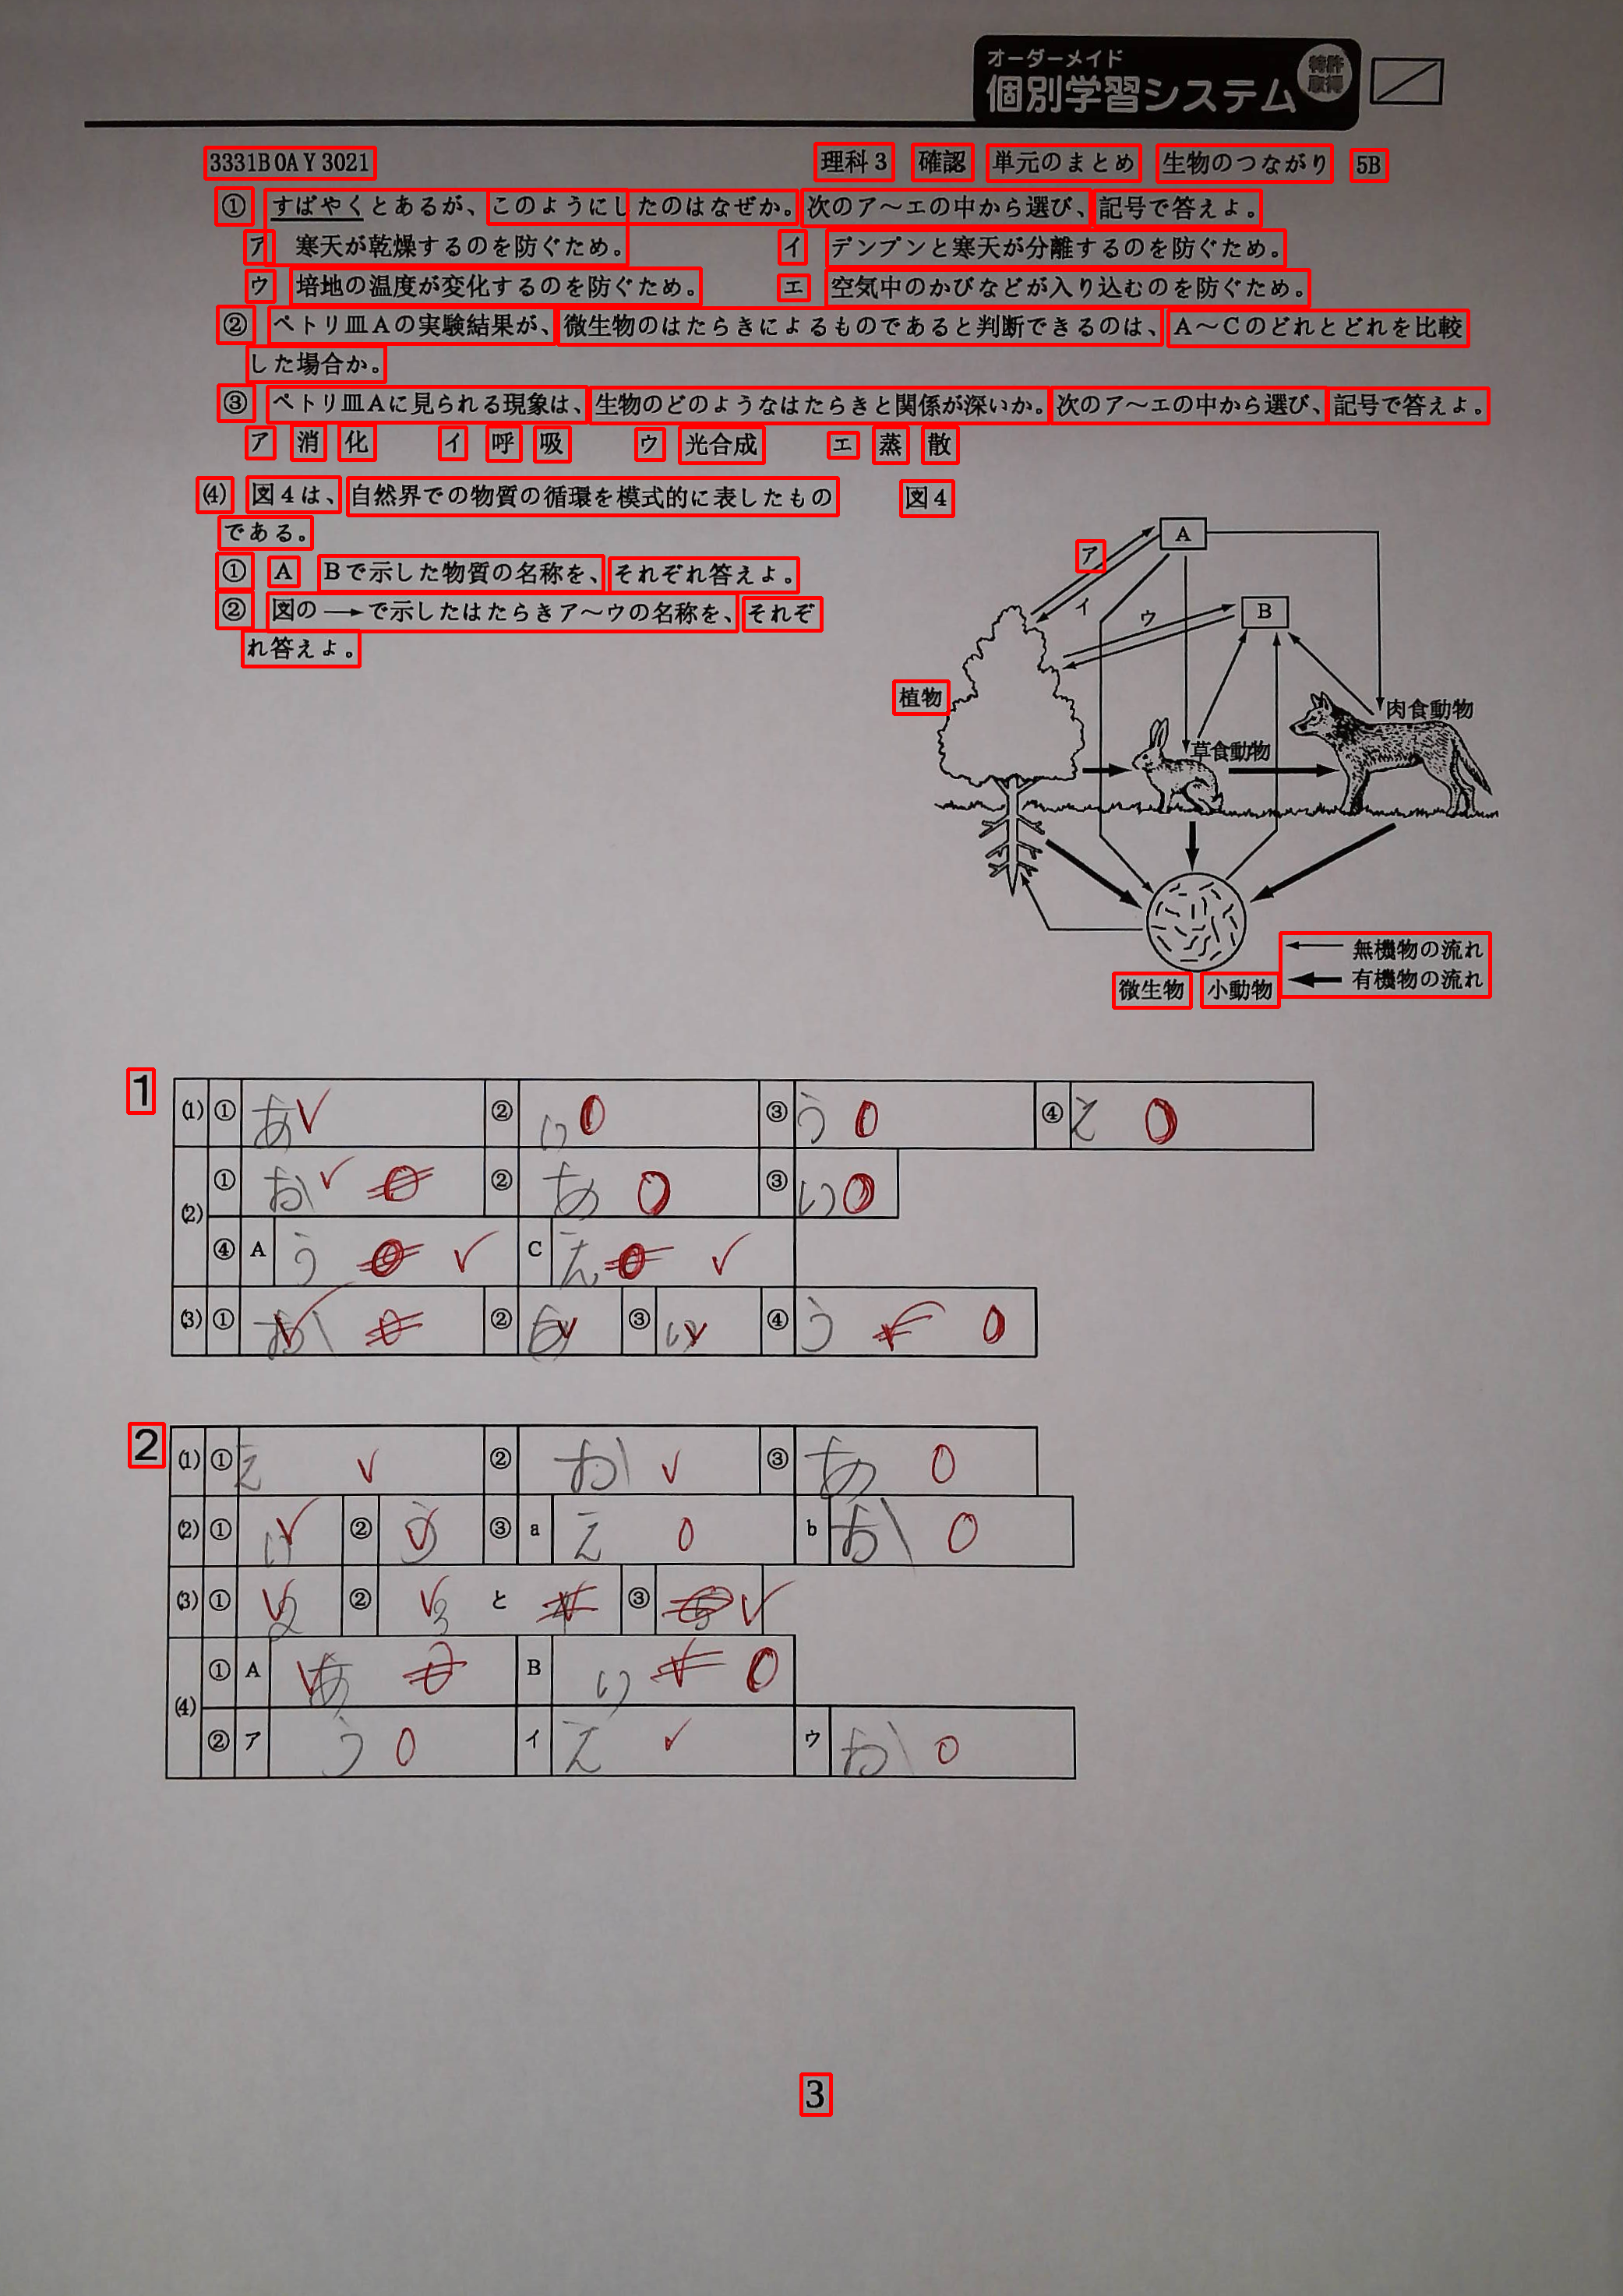 オーダーメイド
個別学習システム
特許
取得
3331B0AY3021 理科3 確認 単元のまとめ 生物のつながり 5B
① すばやくとあるが、このようにしたのはなぜか。次のア～エの中から選び、記号で答えよ。
ア 寒天が乾燥するのを防ぐため。 イ デンプンと寒天が分離するのを防ぐため。
ウ 培地の温度が変化するのを防ぐため。 エ 空気中のかびなどが入り込むのを防ぐため。
② ペトリ皿Aの実験結果が、微生物のはたらきによるものであると判断できるのは、A～Cのどれとどれを比較
した場合か。
③ ペトリ皿Aに見られる現象は、生物のどのようなはたらきと関係が深いか。次のア～エの中から選び、記号で答えよ。
ア 消化 イ 呼吸 ウ 光合成 エ 蒸散
(4) 図4は、自然界での物質の循環を模式的に表したもの
である。
① A Bで示した物質の名称を、それぞれ答えよ。
② 図の→で示したはたらきア～ウの名称を、それぞ
れ答えよ。
図4
A
ア
イ
ウ
B
植物
肉食動物
草食動物
微生物 小動物
無機物の流れ
有機物の流れ
1
(1) ① あ ② い ③ う ④ え
(2) ① お ② あ ③ い
④ A う C え
(3) ① お ② あ ③ い ④ う
2
(1) ① え ② お ③ あ
(2) ① い ② う ③ a え b お
(3) ① 2 ② 3 と ③
(4) ① A あ B い
② ア う イ え ウ お
3